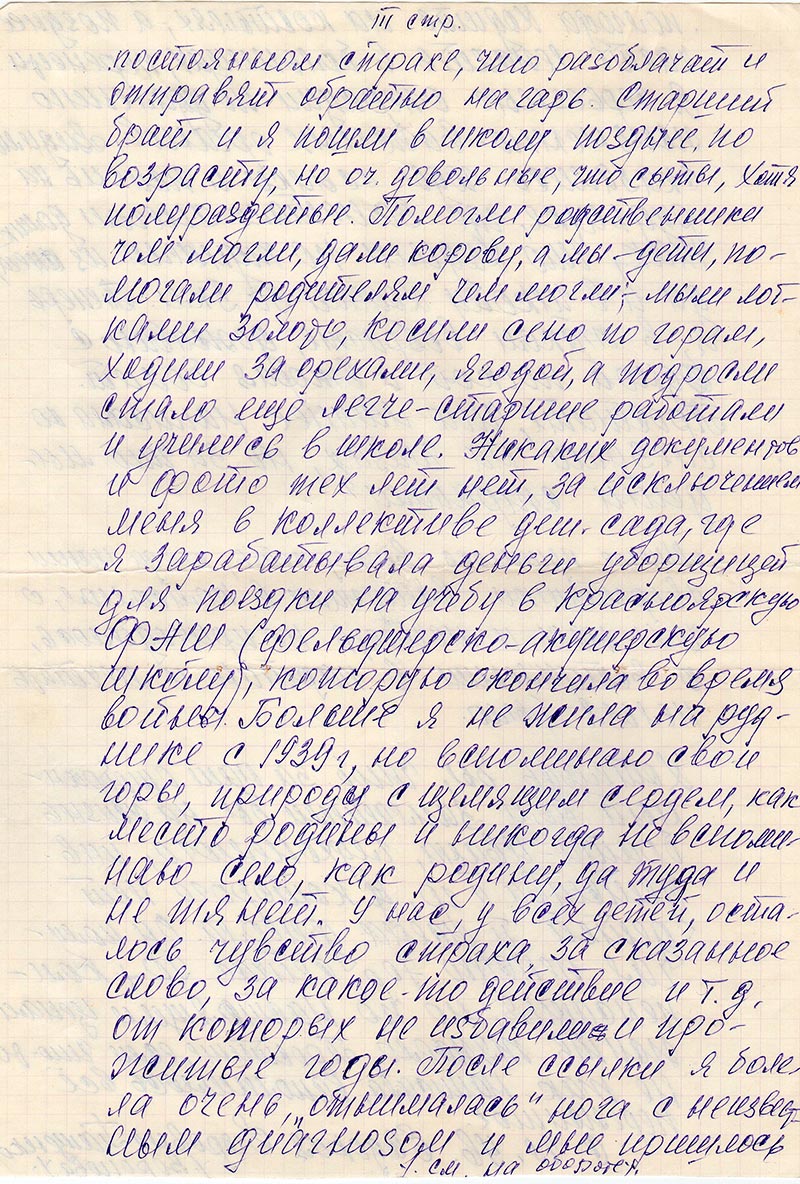 III стр.
постоянном страхе, что разоблачат и
отправят обратно на гарь. Старший
брат и я пошли в школу позднее, по
возрасту, но оч. довольные, что сыты, хотя
полураздетые. Помогли родственники
чем могли, дали корову, а мы – дети, по-
могали родителям чем могли; – мыли лот-
ками золото, косили сено по горам,
ходили за орехами, ягодой, а подросли
стало еще легче – старшие работали
и учились в школе. Никаких документов
и фото тех лет нет, за исключением
меня в коллективе дет. сада, где
я зарабатывала деньги уборщицей
для поездки на учёбу в Красноярскую
ФАШ (фельдшерско-акушерскую
школу), которую окончила во время
войны. Больше я не жила на руд-
нике с 1939 г, но вспоминаю свои
горы, природу с щемящим сердцем, как
место родины и никогда не вспоми-
наю село, как родину, да туда и
не тянет. У нас, у всех детей, оста-
лось чувство страха, за сказанное
слово, за какое-то действие и т.д.
от которых не избавили и про-
житые годы. После ссылки я боле-
ла очень, „отнималась" нога с неизвест-
ным диагнозом и мне пришлось
см. на обороте